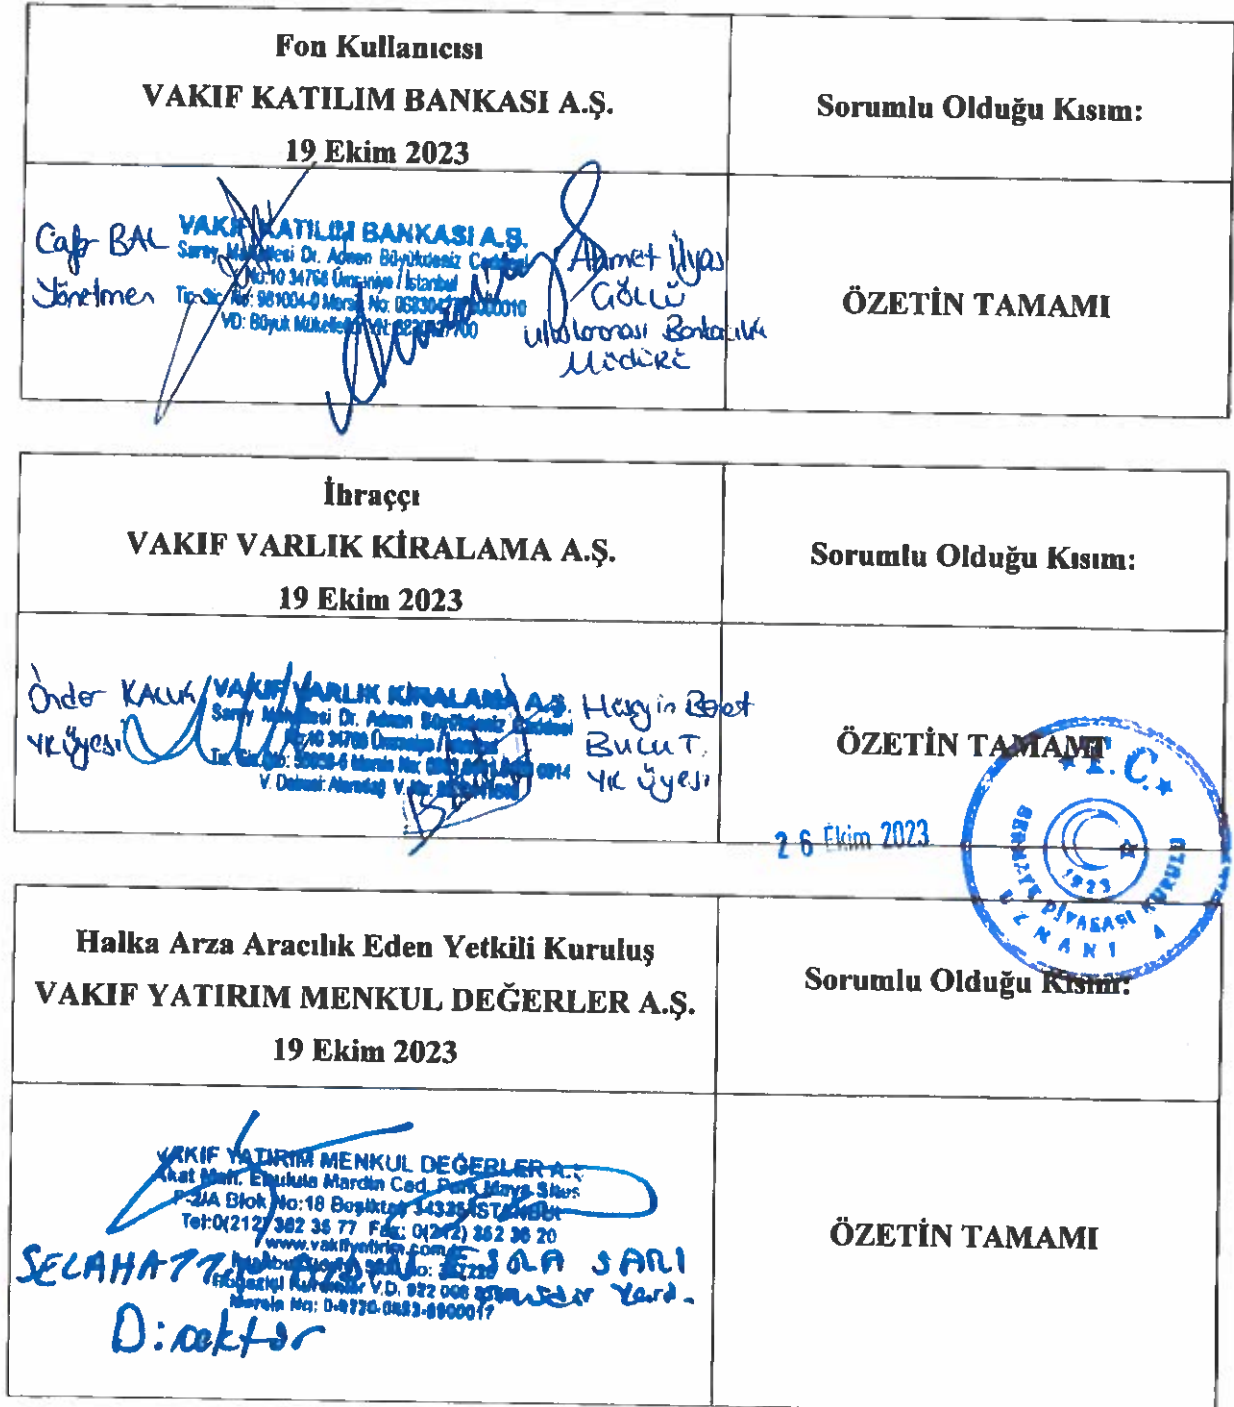 Fon Kullanıcısı
VAKIF KATILIM BANKASI A.Ş.
19 Ekim 2023
Sorumlu Olduğu Kısım:
BAL
Yönetmen
VAKIF KATILIM BANKASI A.Ş.
Saray Mahallesi Dr. Adnan Büyükdeniz Caddesi
No:10 34768 Ümraniye / İstanbul
VD: Büyük Mükellefler
Ahmet İlyas
GÖLLÜ
Uluslararası Bankacılık
Müdürü
ÖZETİN TAMAMI
İhraççı
VAKIF VARLIK KİRALAMA A.Ş.
19 Ekim 2023
Sorumlu Olduğu Kısım:
Önder
YK Üyesi
VAKIF VARLIK KİRALAMA A.Ş.
Saray Mahallesi Dr. Adnan Büyükdeniz Caddesi
No:10 34768 Ümraniye / İstanbul
Hüseyin
BULUT
YK Üyesi
ÖZETİN TAMAMI
26 Ekim 2023
T.C.
SERMAYE PİYASASI KURULU
1923
UZMANI 4
Halka Arza Aracılık Eden Yetkili Kuruluş
VAKIF YATIRIM MENKUL DEĞERLER A.Ş.
19 Ekim 2023
Sorumlu Olduğu Kısım:
VAKIF YATIRIM MENKUL DEĞERLER A.Ş.
Akat Mah. Ebulula Mardin Cad. Park Maya Sitesi
F-2/A Blok No:18 Beşiktaş 34335 İSTANBUL
Tel:0(212) 352 35 77 Fax: 0(212) 352 36 20
www.vakifyatirim.com.tr
Boğaziçi Kurumlar V.D. 922 008
SELAHATTİN
Direktör
ESRA SARI
Müdür Yard.
ÖZETİN TAMAMI